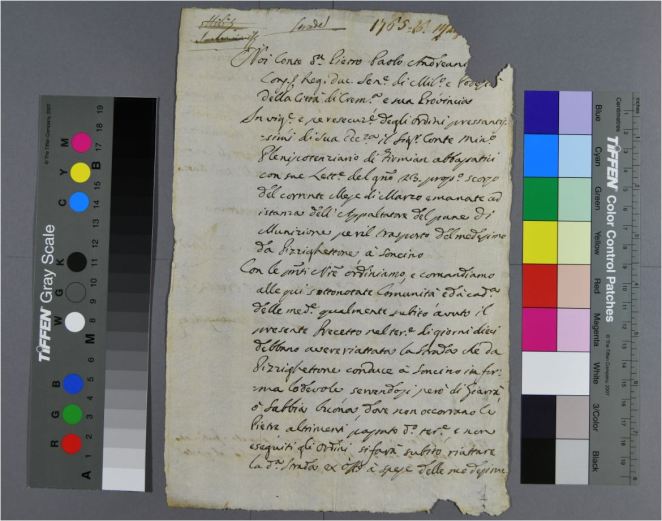 1765. 26. Mar
Noi Conte Dn. Pietro Paolo Andreani
Con.s Reg. duc. Sen.e di Mil.o e Podestà
della Città di Crem.a e sua Provincia
In vig.e e per esecuz.e degli ordini pressantis-
simi di Sua Ecc.za il Sig.r Conte Min.o
Plenipotenziario di Firmian abbassatici
con sue Lett.e del gno 23. pross.o scorso
del corrente Mese di Marzo emanate ad
istanza dell'Appaltatore del pane di
Munizione per il trasporto del medesimo
da Pizzighettone à Soncino
Con le pnti Nre ordiniamo, e comandiamo
alle qui sottonotate Comunità ed à cad.a
delle med.e qualmente subito avuto il
presente Precetto nel ter.e di giorni dieci
debbano avere riattata la strada che da
Pizzighettone conduce à Soncino in for-
ma lodevole servendosi però di Giarra,
ò Sabbia buona dove non occorrano le
Pietre altrimenti passato d.o ter.e e non
eseguiti gli ordini si farà subito riattare
la d.a strada ex off.o à spese delle medesime
TIFFEN Gray Scale
© The Tiffen Company, 2007
R G B W G K C Y M
A 1 2 3 4 5 6 M 8 9 10 11 12 13 14 15 B 17 18 19
TIFFEN Color Control Patches
© The Tiffen Company, 2007
Centimetres
Inches
Blue
Cyan
Green
Yellow
Red
Magenta
White
3/Color
Black